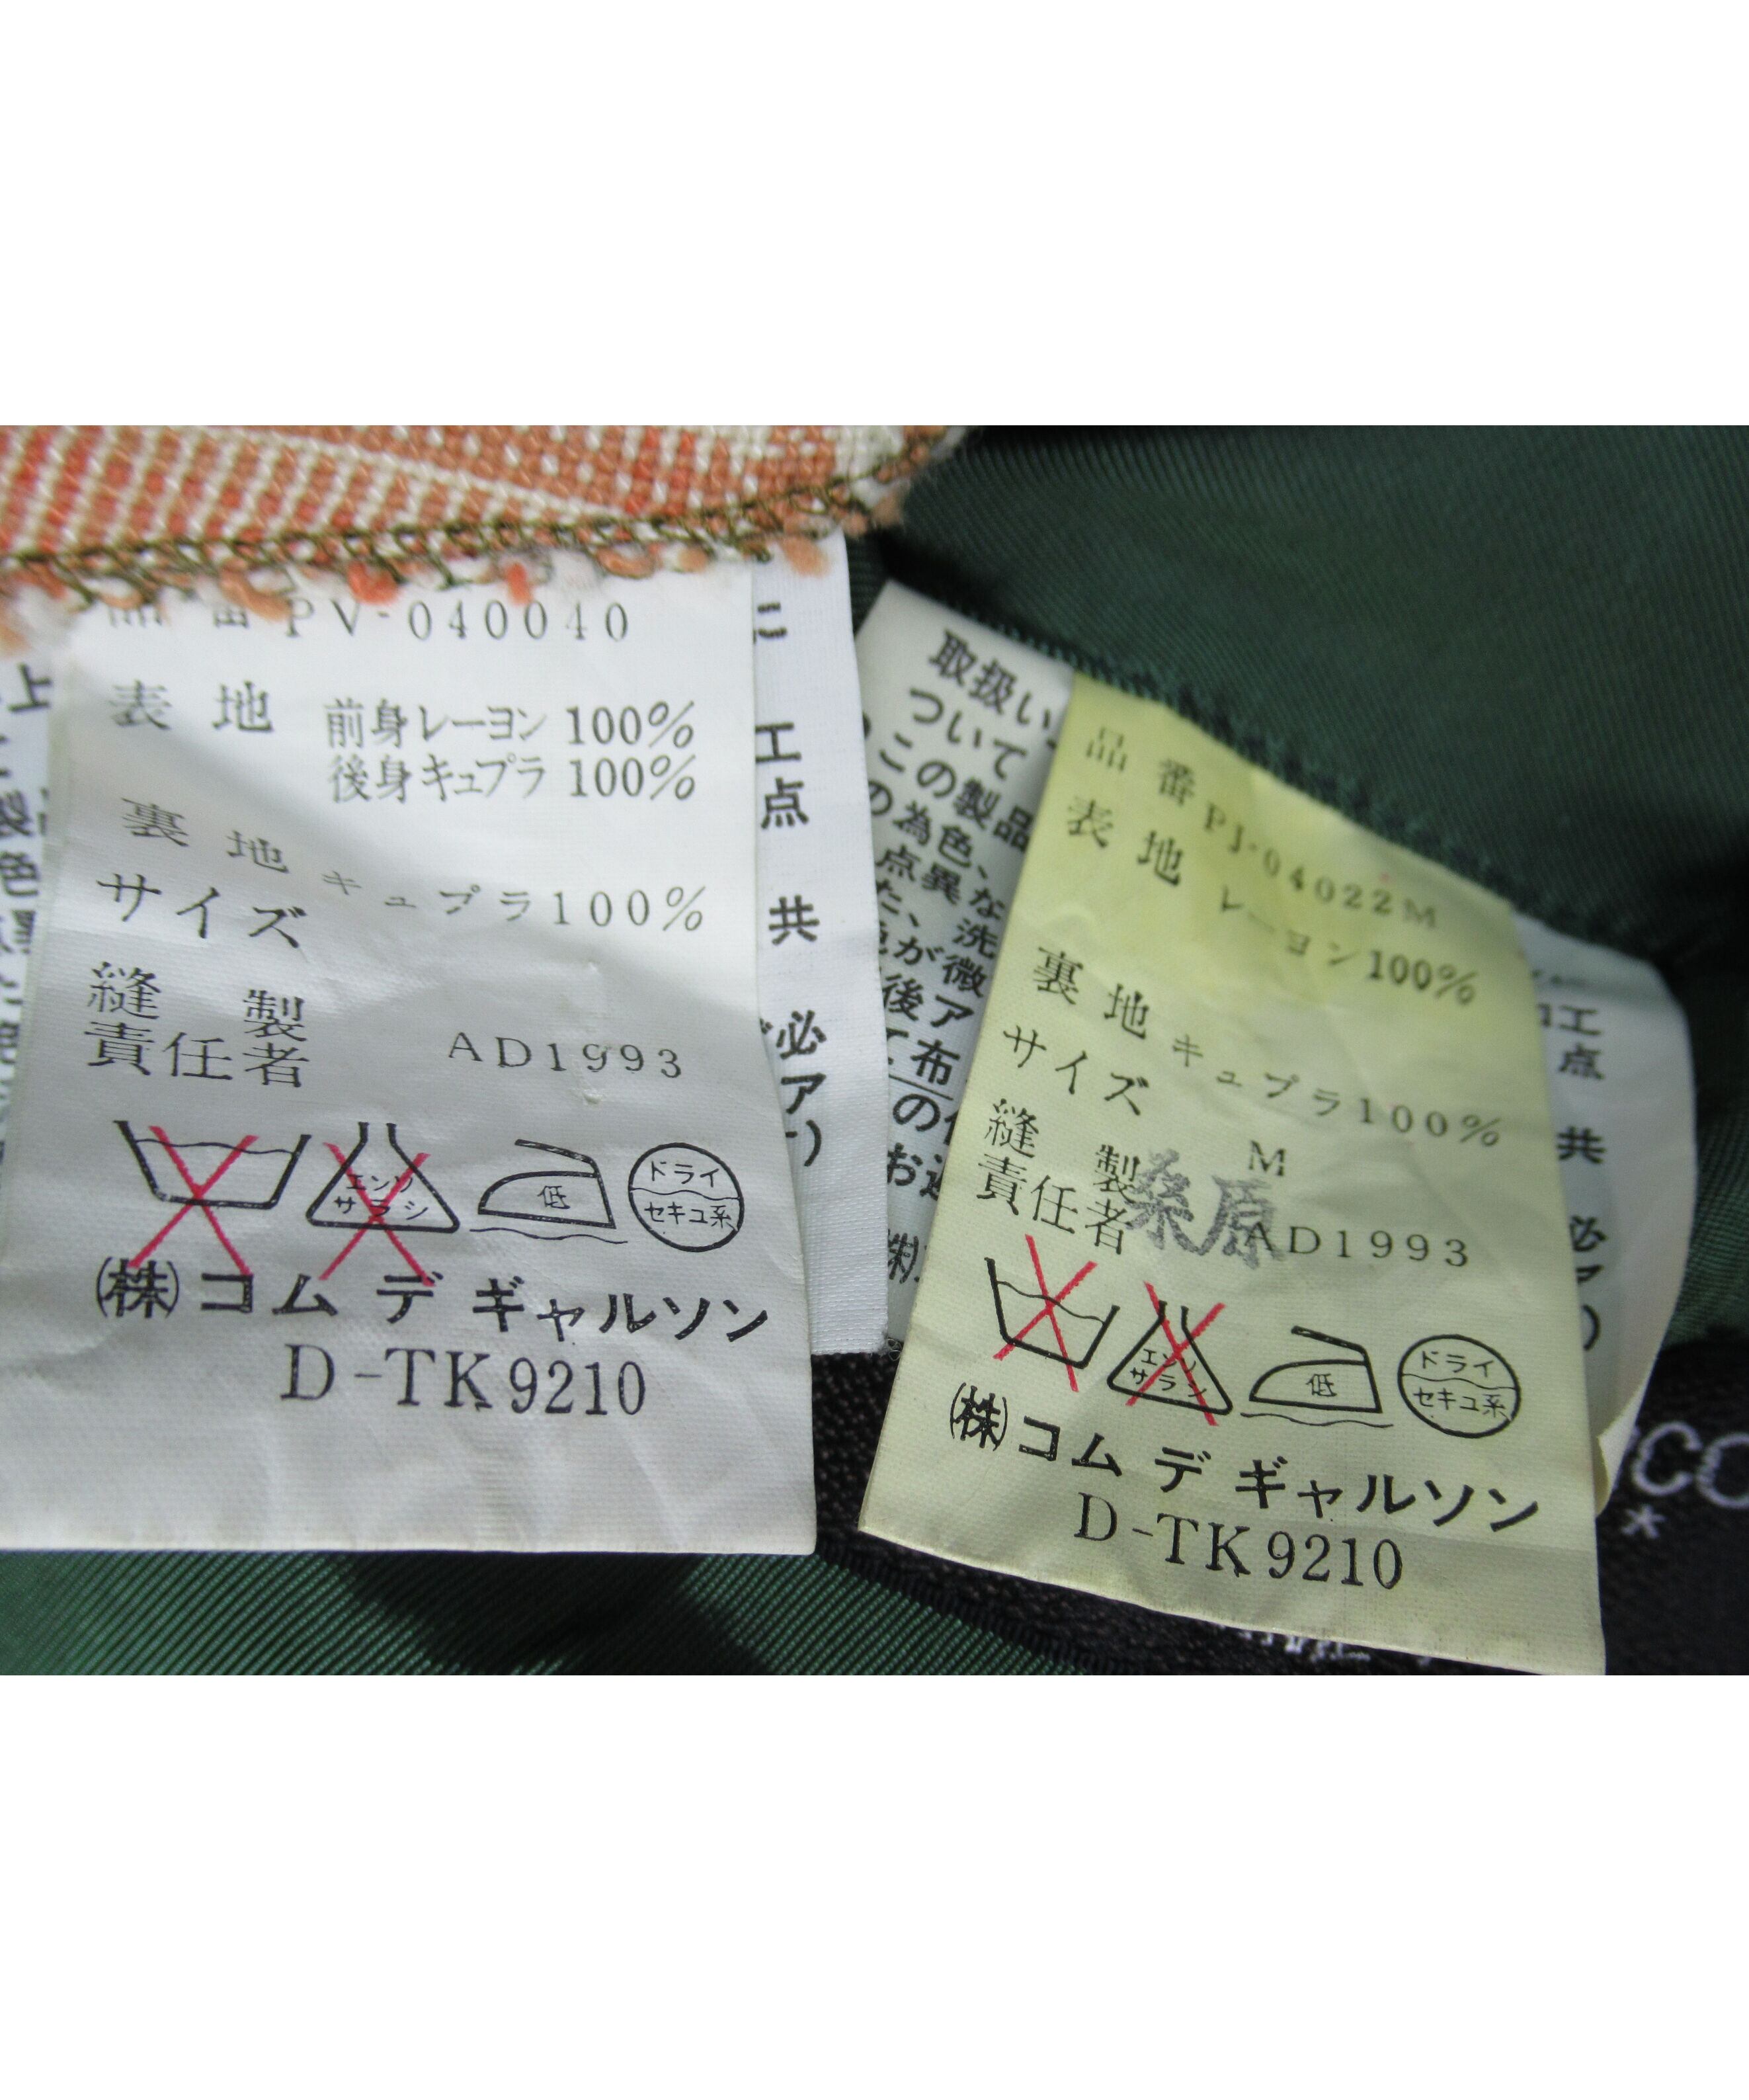 品番 PV-040040
表地 前身レーヨン 100%
後身キュプラ 100%
裏地 キュプラ100%
サイズ
縫製
責任者 AD1993
エンソ
サラシ
低
ドライ
セキユ系
(株)コム デ ギャルソン
D-TK9210
に
工
点
共
必
ア
取扱い
ついて
この製品
の為色、
点異な
た、洗
色が微
後ア
布
の
お
品番 PJ-04022M
表地 レーヨン100%
裏地 キュプラ100%
サイズ M
縫製
責任者 桑原 AD1993
エンソ
サラシ
低
ドライ
セキユ系
(株)コム デ ギャルソン
D-TK9210
工
点
共
必